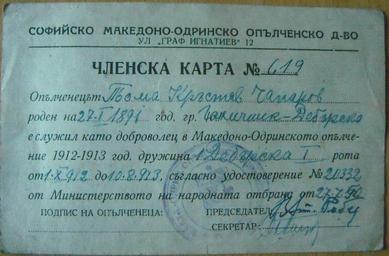 СОФИЙСКО МАКЕДОНО-ОДРИНСКО ОПЪЛЧЕНСКО Д-ВО
УЛ „ГРАФ ИГНАТИЕВ" 12
ЧЛЕНСКА КАРТА № 619
Опълченецът Тома Кръстев Чапаров
роден на 27-I 1896 гр. Галичник-Дебърско
е служил като доброволец в Македоно-Одринското опълче-
ние 1912-1913 год. дружина 1 Дебърска I рота
от 1.X.912 до 10.8.913, съгласно удостоверение № 21332
от Министерството на народната отбрана от 27.7.
ПОДПИС НА ОПЪЛЧЕНЕЦА: ПРЕДСЕДАТЕЛ
СЕКРЕТАР: